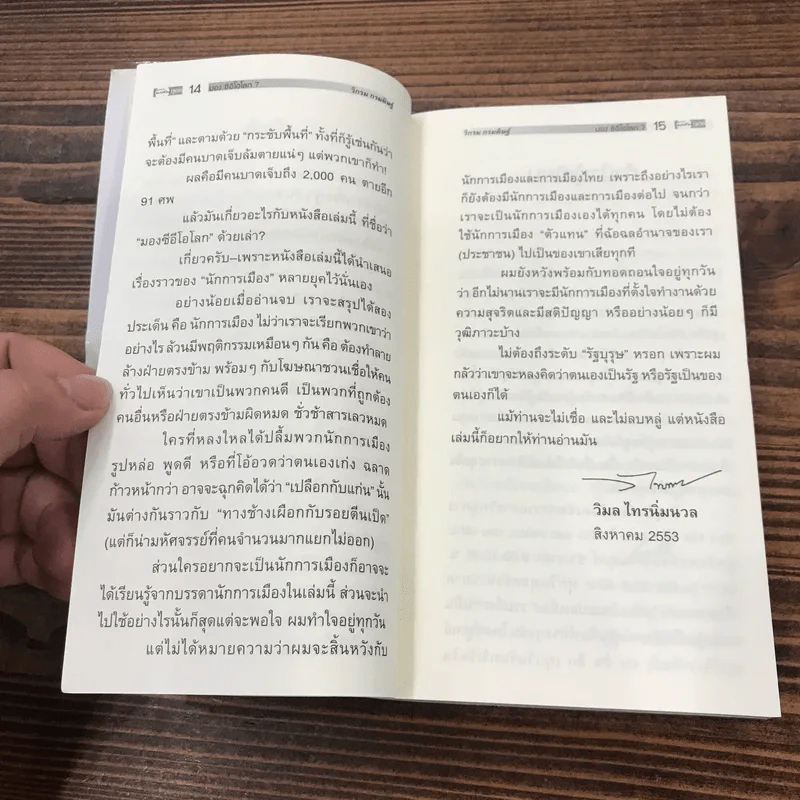 14 มอง ซีอีโอโลก 7
วิกรม กรมดิษฐ์
พื้นที่" และตามด้วย "กระชับพื้นที่" ทั้งที่ก็รู้เช่นกันว่า
จะต้องมีคนบาดเจ็บล้มตายแน่ๆ แต่พวกเขาก็ทำ!
ผลคือมีคนบาดเจ็บถึง 2,000 คน ตายอีก
91 ศพ
แล้วมันเกี่ยวอะไรกับหนังสือเล่มนี้ ที่ชื่อว่า
"มองซีอีโอโลก" ด้วยเล่า?
เกี่ยวครับ–เพราะหนังสือเล่มนี้ได้นำเสนอ
เรื่องราวของ "นักการเมือง" หลายยุคไว้นั่นเอง
อย่างน้อยเมื่ออ่านจบ เราจะสรุปได้สอง
ประเด็น คือ นักการเมือง ไม่ว่าเราจะเรียกพวกเขาว่า
อย่างไร ล้วนมีพฤติกรรมเหมือนๆ กัน คือ ต้องทำลาย
ล้างฝ่ายตรงข้าม พร้อมๆ กับโฆษณาชวนเชื่อให้คน
ทั่วไปเห็นว่าเขาเป็นพวกคนดี เป็นพวกที่ถูกต้อง
คนอื่นหรือฝ่ายตรงข้ามผิดหมด ชั่วช้าสารเลวหมด
ใครที่หลงใหลได้ปลื้มพวกนักการเมือง
รูปหล่อ พูดดี หรือที่โอ้อวดว่าตนเองเก่ง ฉลาด
ก้าวหน้ากว่า อาจจะฉุกคิดได้ว่า "เปลือกกับแก่น" นั้น
มันต่างกันราวกับ "ทางช้างเผือกกับรอยตีนเป็ด"
(แต่ก็น่ามหัศจรรย์ที่คนจำนวนมากแยกไม่ออก)
ส่วนใครอยากจะเป็นนักการเมืองก็อาจจะ
ได้เรียนรู้จากบรรดานักการเมืองในเล่มนี้ ส่วนจะนำ
ไปใช้อย่างไรนั้นก็สุดแต่จะพอใจ ผมทำใจอยู่ทุกวัน
แต่ไม่ได้หมายความว่าผมจะสิ้นหวังกับ
วิกรม กรมดิษฐ์
มอง ซีอีโอโลก 7 15
นักการเมืองและการเมืองไทย เพราะถึงอย่างไรเรา
ก็ยังต้องมีนักการเมืองและการเมืองต่อไป จนกว่า
เราจะเป็นนักการเมืองเองได้ทุกคน โดยไม่ต้อง
ใช้นักการเมือง "ตัวแทน" ที่ฉ้อฉลอำนาจของเรา
(ประชาชน) ไปเป็นของเขาเสียทุกที
ผมยังหวังพร้อมกับทอดถอนใจอยู่ทุกวัน
ว่า อีกไม่นานเราจะมีนักการเมืองที่ตั้งใจทำงานด้วย
ความสุจริตและมีสติปัญญา หรืออย่างน้อยๆ ก็มี
วุฒิภาวะบ้าง
ไม่ต้องถึงระดับ "รัฐบุรุษ" หรอก เพราะผม
กลัวว่าเขาจะหลงคิดว่าตนเองเป็นรัฐ หรือรัฐเป็นของ
ตนเองก็ได้
แม้ท่านจะไม่เชื่อ และไม่ลบหลู่ แต่หนังสือ
เล่มนี้ก็อยากให้ท่านอ่านมัน
วิมล ไทรนิ่มนวล
สิงหาคม 2553